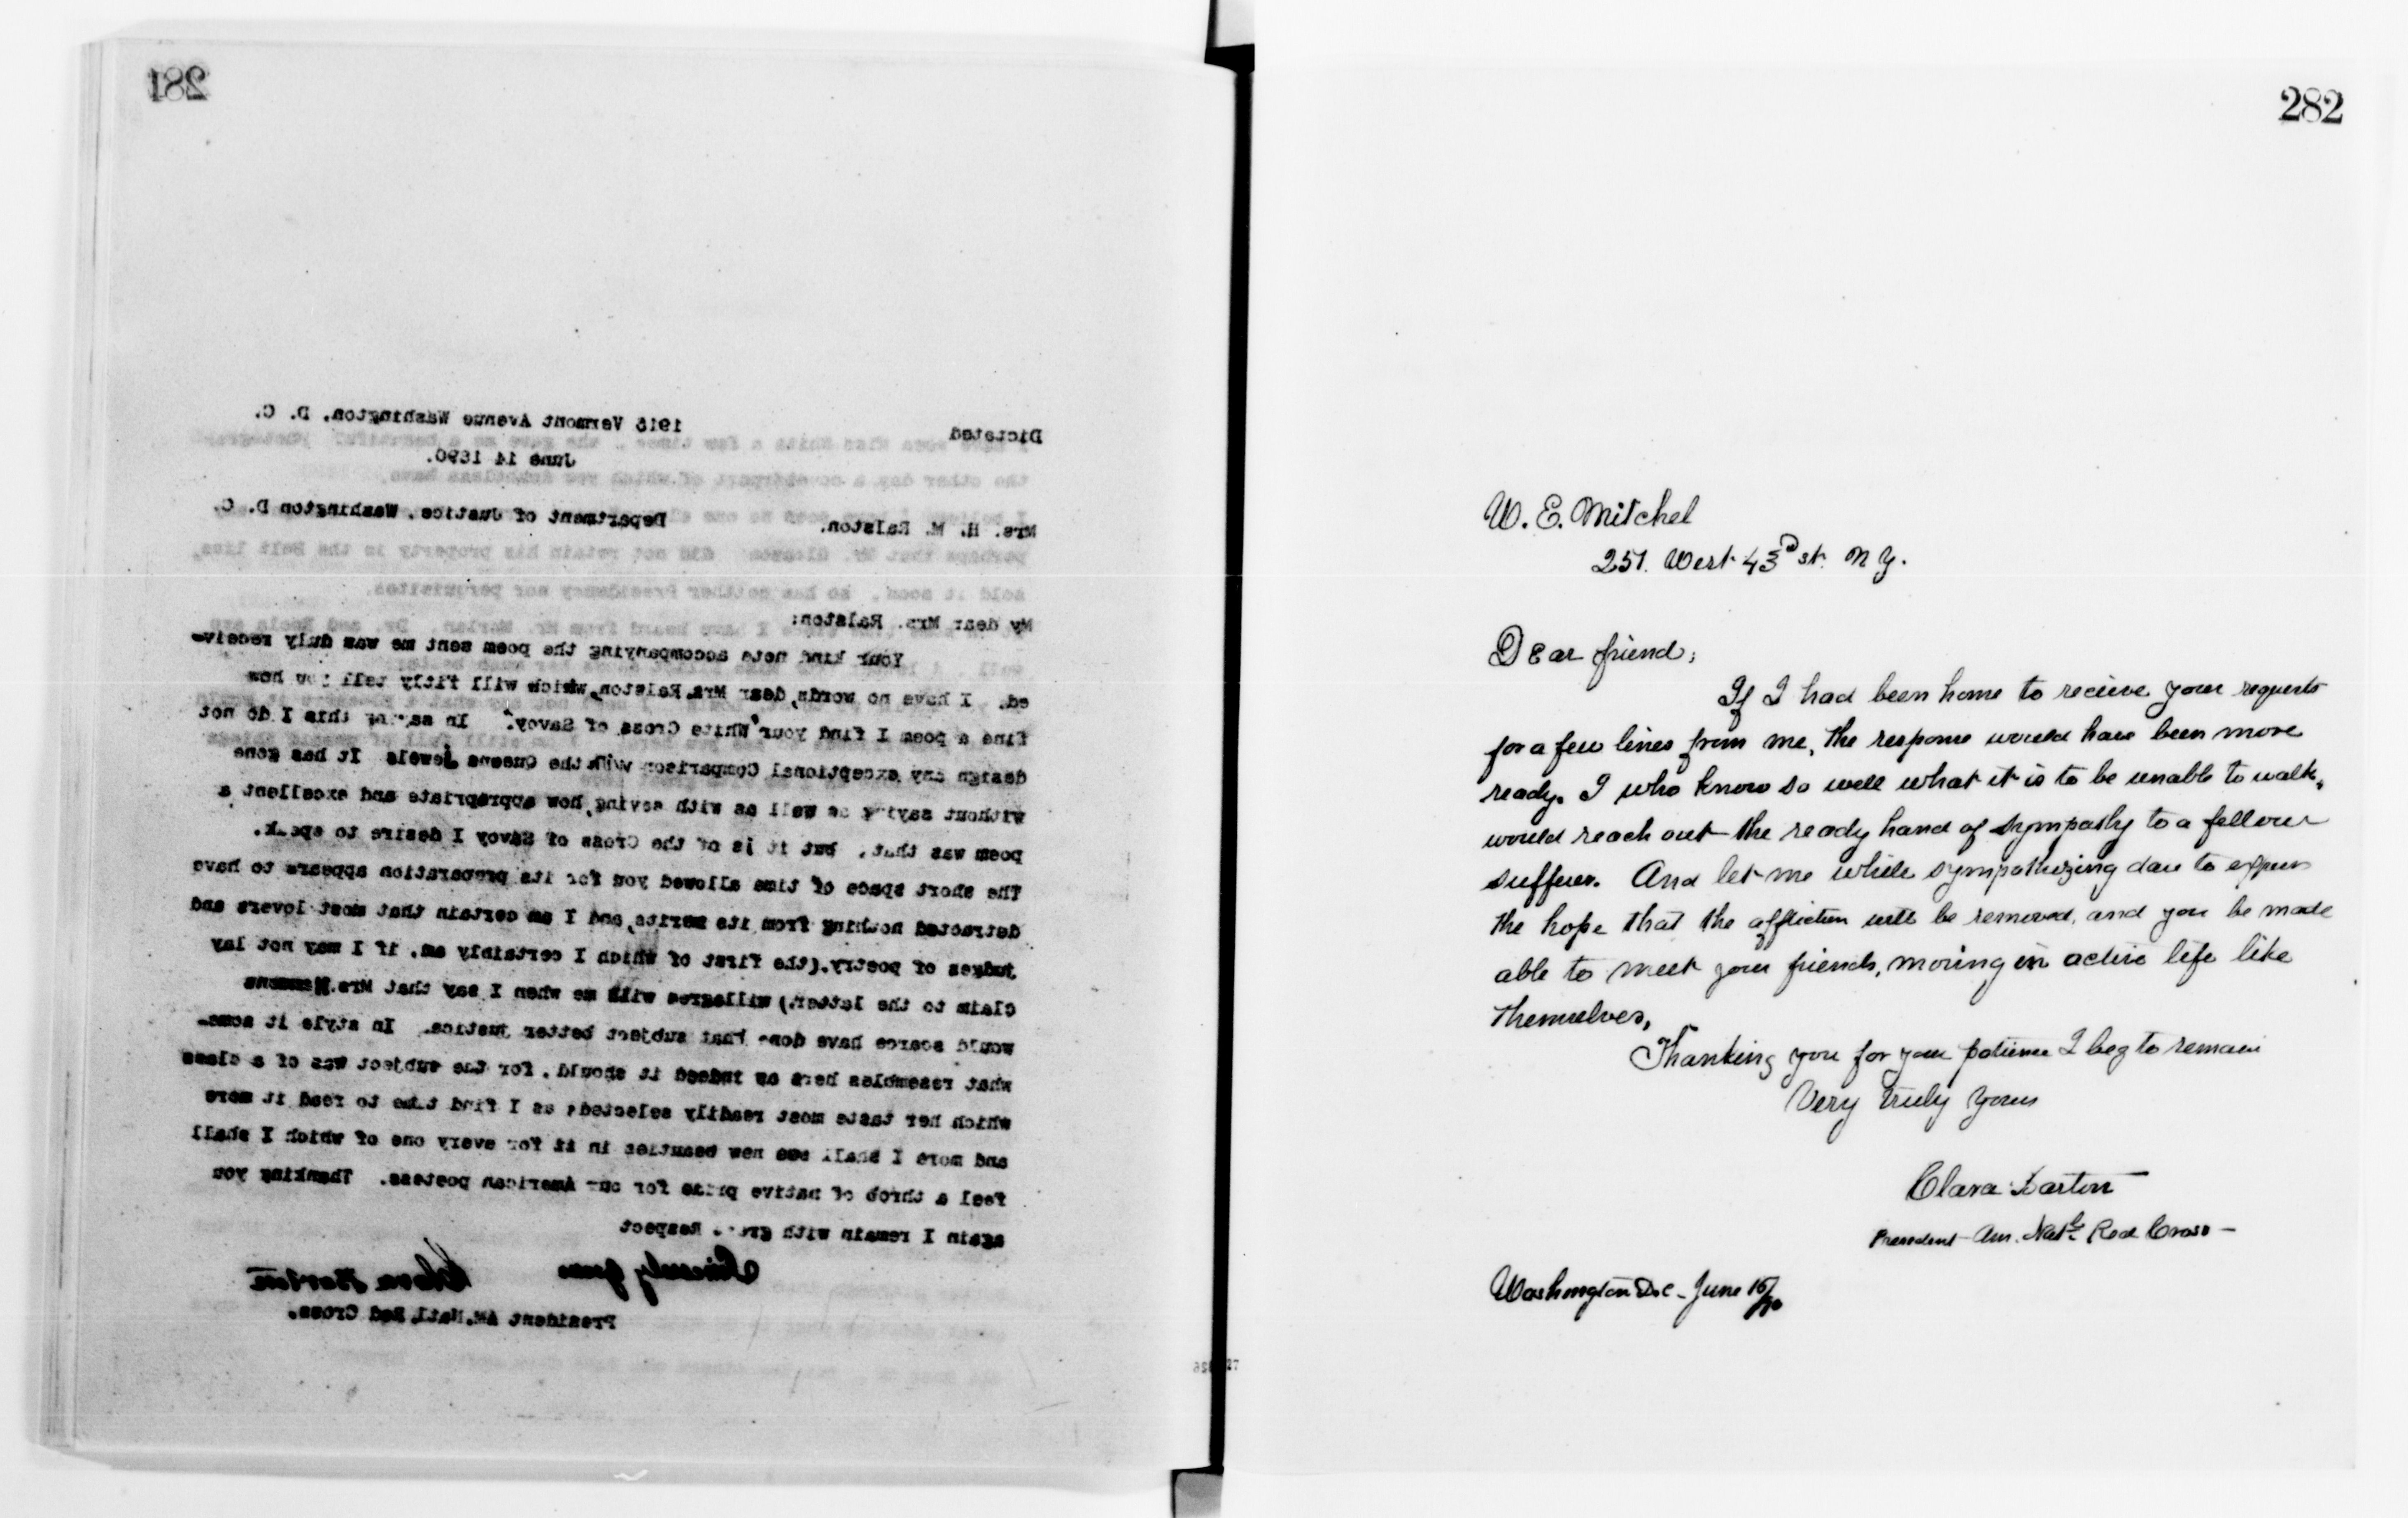 281
Dictated
1915 Vermont Avenue Washington, D. C.
June 14 1890.
Mrs. H. M. Ralston.
Department of Justice, Washington D. C.
My dear Mrs. Ralston:
Your kind note accompanying the poem sent me was duly receive-
ed. I have no words, dear Mrs. Ralston, which will fitly tell you how
fine a poem I find your "White Cross of Savoy". In saying this I do not
design any exceptional Comparison with the Queens jewels It has gone
without saying as well as with saying, how appropriate and excellent a
poem was that, but it is of the Cross of Savoy I desire to speak.
The short space of time allowed you for its preparation appears to have
detracted nothing from its merits, and I am certain that most lovers and
judges of poetry. (the first of which I certainly am, if I may not lay
claim to the latter,) will agree with me when I say that Mrs. Hemmens
would scarce have done that subject better justice. In style it some-
what resembles hers as indeed it should, for the subject was of a class
which her taste most readily selected; as I find time to read it more
and more I shall see new beauties in it for every one of which I shall
feel a throb of native pride for our American poetess. Thanking you
again I remain with great Respect
Sincerely yours
Clara Barton
President AM. Natl. Red Cross.
282
W. E. Mitchel
251. West 43d st. N Y.
Dear friend;
If I had been home to recieve your requests
for a few lines from me, the response would have been more
ready. I who know so well what it is to be unable to walk,
would reach out the ready hand of sympathy to a fellow
sufferer. And let me while sympathizing dare to express
the hope that the affliction will be removed, and you be made
able to meet your friends, moving in active life like
themselves,
Thanking you for your patience I beg to remain
Very truly yours
Clara Barton
President Am. Natl Red Cross -
Washington D.C - June 16/90